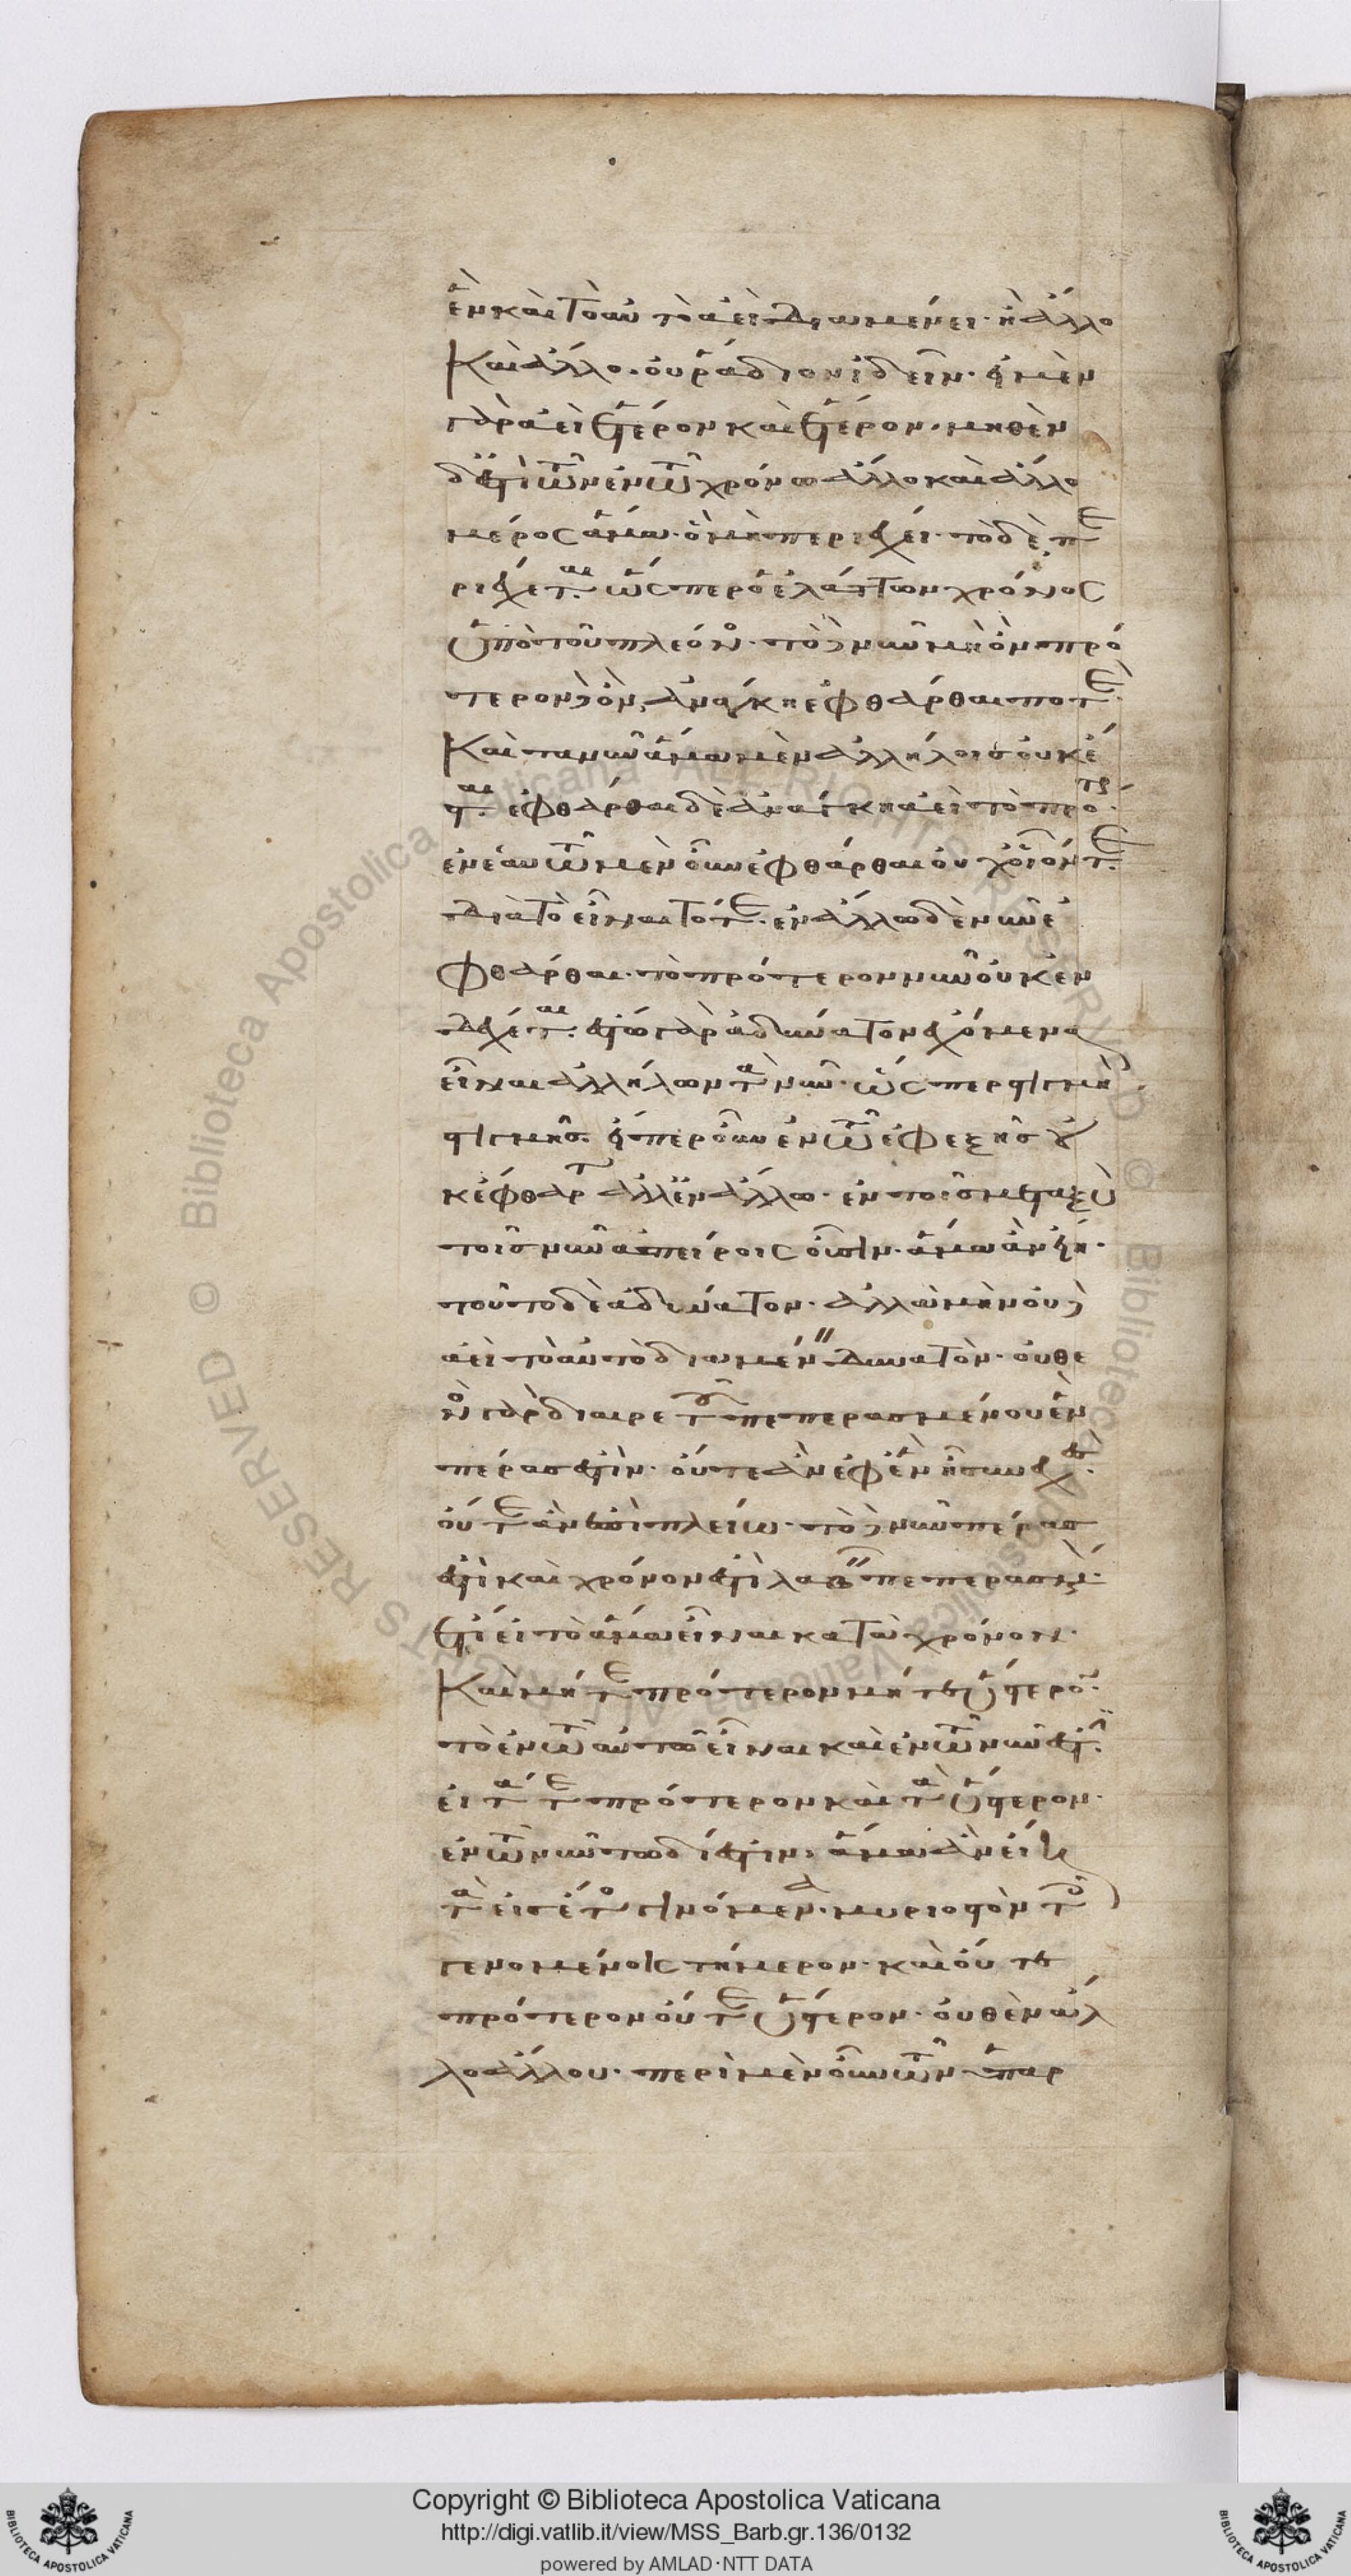 ἓν καὶ τὸ αὐτὸ ἀεὶ διαμένει· ἢ ἄλλο
καὶ ἄλλο. οὐ ῥάδιον ἰδεῖν. εἰ μὲν
γὰρ ἀεὶ ἕτερον καὶ ἕτερον. μηθὲν
δ' ἐστὶ τῶν ἐν τῶ χρόνω ἄλλο καὶ ἄλλο
μέρος ἅμα. ὃ μὴ περιέχει. τὸ δὲ πε
ριέχεται. ὥσπερ ὁ ἐλάττων χρόνος
ὑπὸ τοῦ πλείονος. τὸ δὲ νῦν μὴ ὂν πρό
τερον δὲ ὂν, ἀνάγκη ἐφθάρθαι ποτέ.
καὶ τὰ νῦν ἅμα μὲν ἀλλήλοις οὐκ ἔ
σται. ἐφθάρθαι δὲ ἀνάγκη ἀεὶ τὸ πρότερον.
ἐν ἑαυτῶ μὲν οὖν ἐφθάρθαι οὐχ οἷόν τε.
διὰ τὸ εἶναι τότε. ἐν ἄλλω δὲ νῦν ἐ
φθάρθαι. τὸ πρότερον νῦν οὐκ ἐν
δέχεται. ἔστω γὰρ ἀδύνατον ἐχόμενα
εἶναι ἀλλήλων τὰ νῦν. ὥσπερ στιγμὴ
στιγμῆς. εἴπερ οὖν ἐν τῶ ἐφεξῆς οὐ
κ ἔφθαρται ἀλλ' ἐν ἄλλω. ἐν τοῖς μεταξὺ
τοῖς νῦν ἀπείροις οὖσιν. ἅμα ἂν εἴη.
τοῦτο δὲ ἀδύνατον. ἀλλὰ μὴν οὐδὲ
ἀεὶ τὸ αὐτὸ διαμένειν δυνατόν. οὐθε
νὸς γὰρ διαιρετοῦ πεπερασμένου ἓν
πέρας ἐστίν. οὔτε ἂν ἐφ' ἓν ἦ συνεχές.
οὔτε ἂν ἐπὶ πλείω. τὸ δὲ νῦν πέρας
ἐστὶ καὶ χρόνον ἔστι λαβεῖν πεπερασμένον.
ἔτι εἰ τὸ ἅμα εἶναι κατὰ χρόνον.
καὶ μήτε πρότερον μήτε ὕστερον.
τὸ ἐν τῶ αὐτῶ εἶναι καὶ ἐν τῶ νῦν ἐστιν.
εἰ τά τε πρότερον καὶ τὰ ὕστερον.
ἐν τῶ νῦν τωδί ἐστιν, ἅμα ἂν εἴη
τὰ εἰς ἔτος γινόμενα μυριοστὸν τοῖς
γενομένοις τήμερον. καὶ οὔτε
πρότερον οὔτε ὕστερον. οὐθὲν ἄλ
λο ἄλλου. περὶ μὲν οὖν τῶν ὑπαρ
Copyright © Biblioteca Apostolica Vaticana
http://digi.vatlib.it/view/MSS_Barb.gr.136/0132
powered by AMLAD·NTT DATA